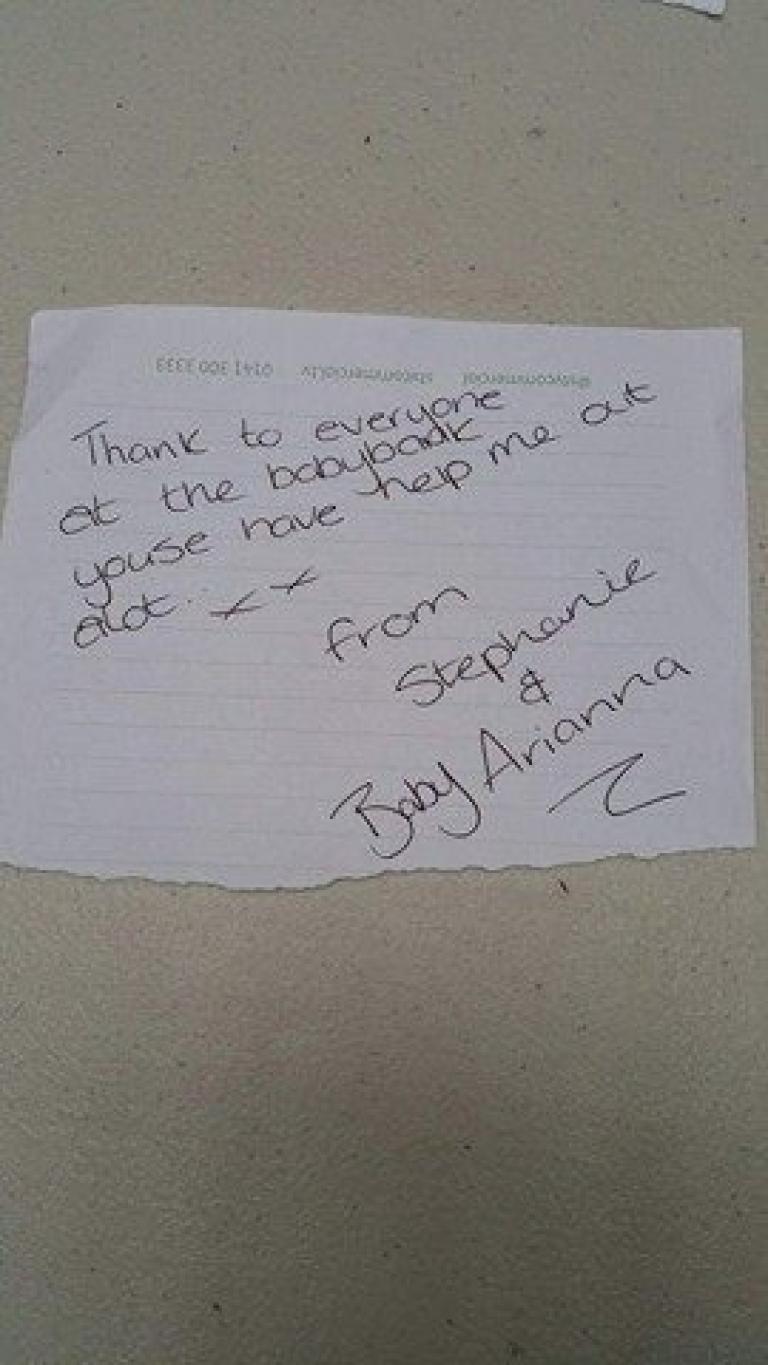 @stvcommercial stvcommercial.tv 0141 300 3333
Thank to everyone
at the babybank
youse have help me out
alot. x x
from
Stephanie
&
Baby Arianna